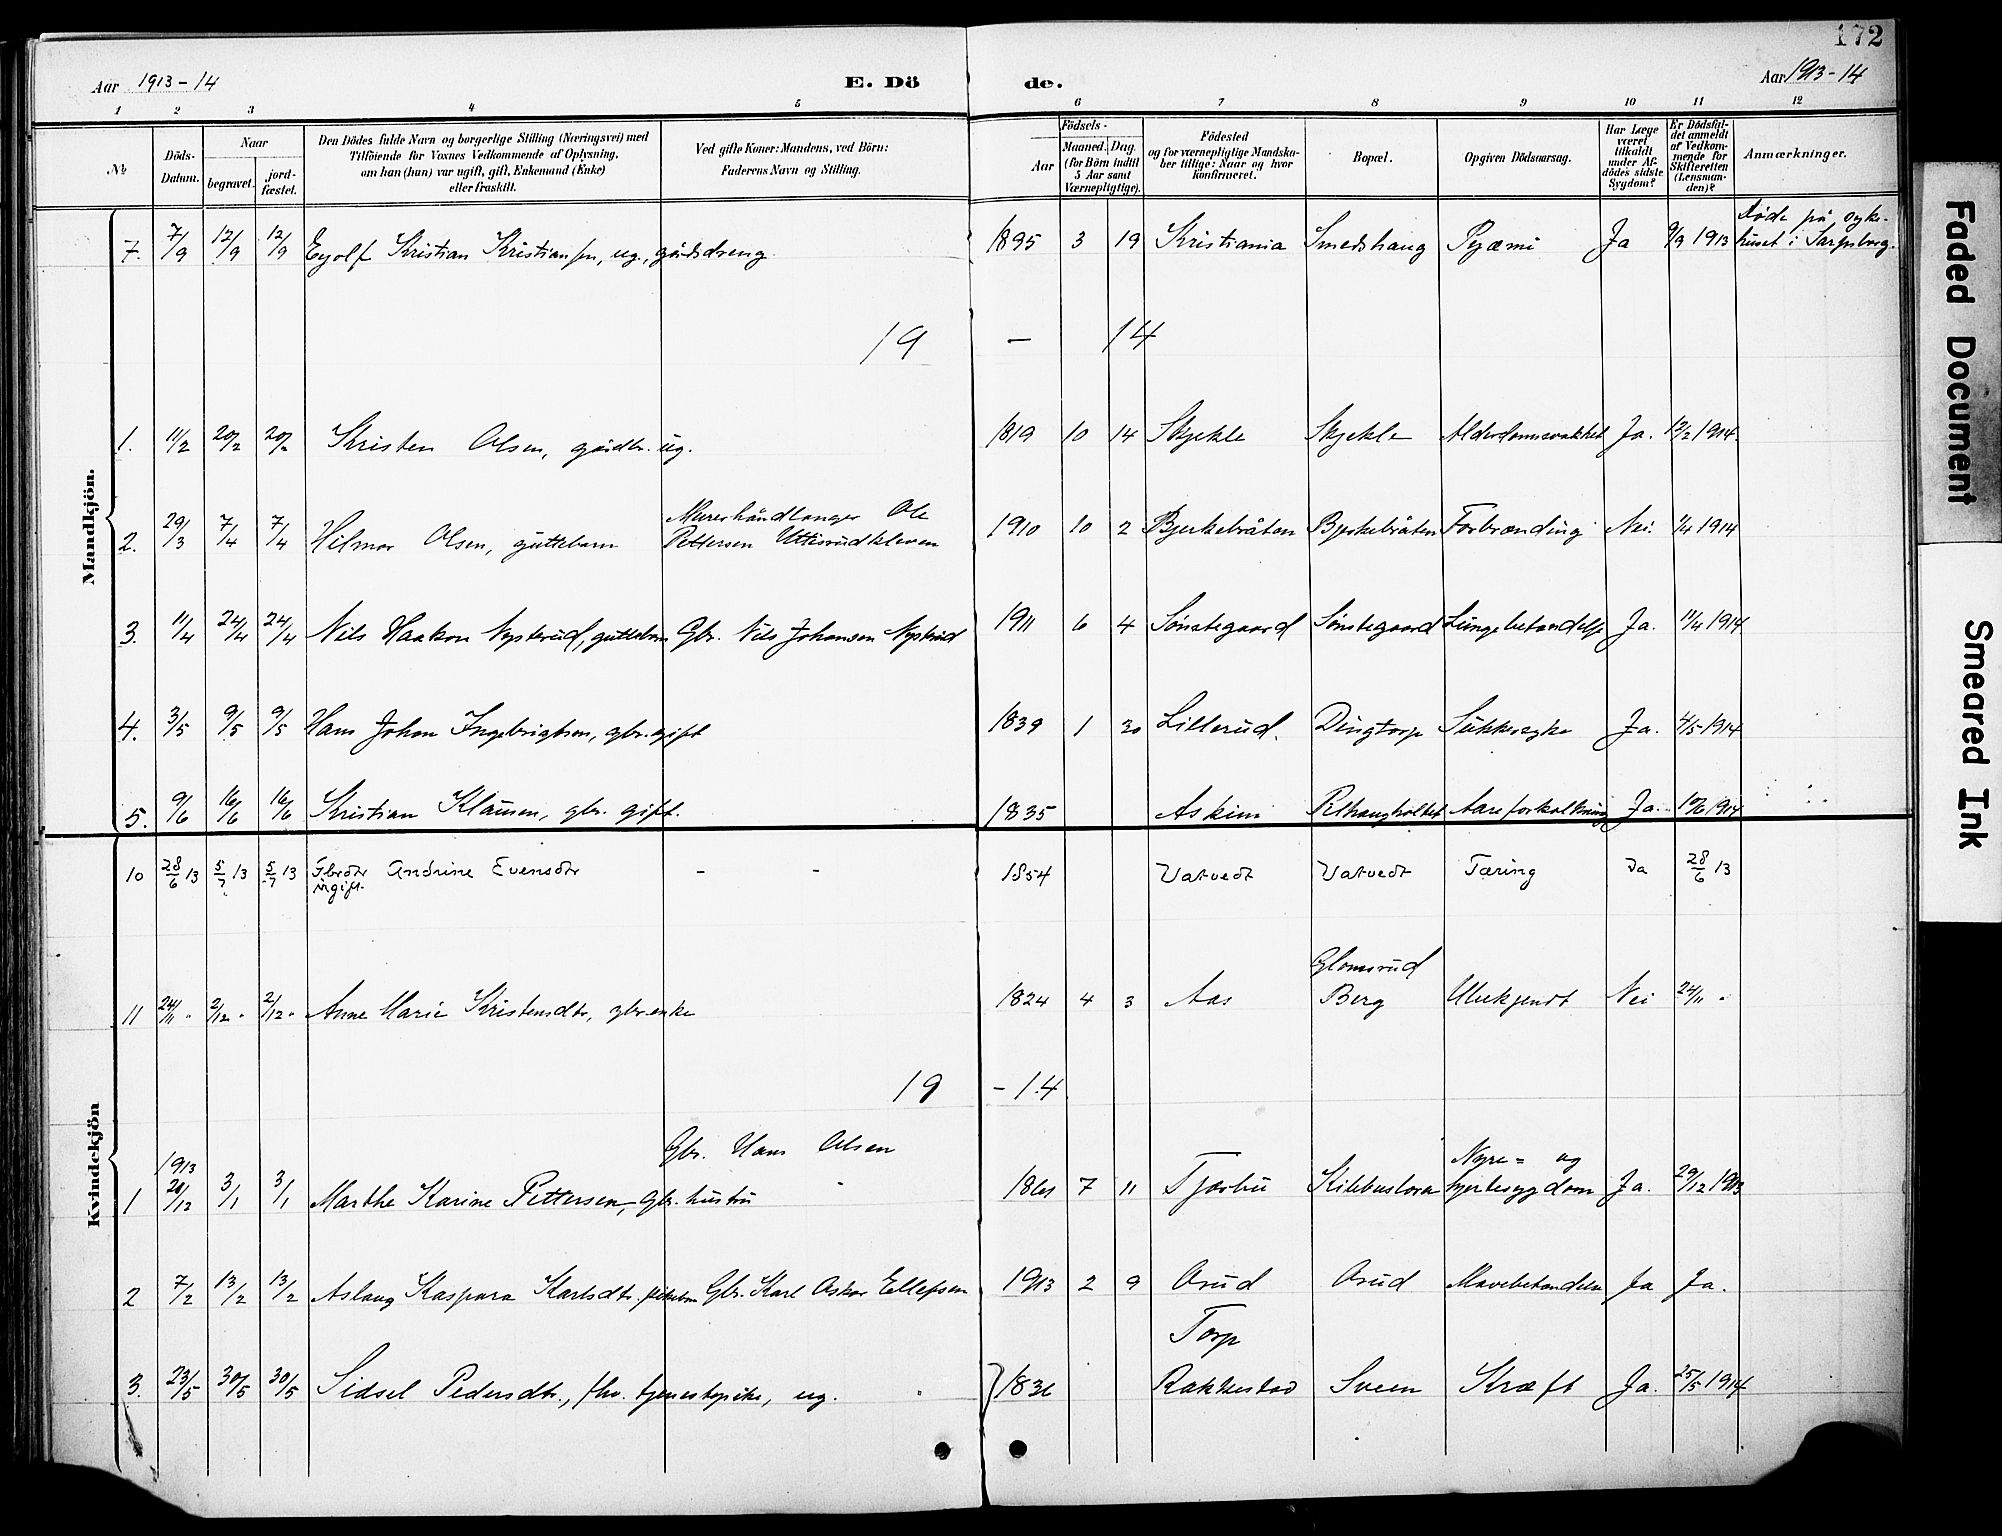 172
Aar 1913-14 E. Dö de. Aar 1913-14
1 2 3 4 5 6 7 8 9 10 11 12
№
Döds-Datum.
Naar
begravet.
jord-fæstet.
Den Dödes fulde Navn og borgerlige Stilling (Næringsvei) med
Tilföiende for Voxnes Vedkommende af Oplysning,
om han (hun) var ugift, gift, Enkemand (Enke)
eller fraskilt.
Ved gifte Koner: Mandens, ved Börn:
Faderens Navn og Stilling.
Födsels-
Aar
Maaned. Dag.
(for Börn indtil
5 Aar samt
Værnepligtige).
Födested
og for værnepligtige Mandska-
ber tillige: Naar og hvor
konfirmeret.
Bopæl.
Opgiven Dödsaarsag.
Har Læge
været
tilkaldt
under Af-
dödes sidste
Sygdom?
Er Dödsfal-
det anmeldt
af Vedkom-
mende for
Skifteretten
(Lensman-
den)?
Anmærkninger.
Mandkjön.
7. 7/9 12/9 12/9 Eyolf Kristian Kristiansen, ug., gårdsdreng. 1895 3 19 Kristiania Smedshaug Pyæmi Ja 9/9 1913 Døde på syke-
huset i Sarpsborg.
19 - 14
1. 11/2 20/2 20/2 Kristen Olsen, gårdbr. ug. 1819 10 14 Skjekle Skjekle Alderdomssvakhet Ja. 12/2 1914.
2. 29/3 7/4 7/4 Hilmar Olsen, guttebarn Murerhåndlanger Ole
Pettersen 1910 10 2 Bjerkebråten Bjerkebråten Forbrænding Nei. 1/4 1914
3. 11/4 24/4 24/4 Nils Haakon Nysterud, guttebarn Gbr. Nils Johansen Nysterud 1911 6 4 Sønstegaard Sønstegaard Lungebetændelse Ja. 11/4 1914
4. 3/5 9/5 9/5 Hans Johan Ingebrigtsen, gbr. gift 1839 1 30 Lillerud. Dingtorp Sukkersyke Ja. 4/5 1914
5. 9/6 16/6 16/6 Kristian Klausen, gbr. gift. 1835 Askim Aareforkalkning Ja. 10/6 1914
Kvindekjön
10 28/6 13 5/7 13 5/7 13 Gbrdtr Andrine Evensdtr - - 1854 Vatvedt Vatvedt Tæring Ja 28/6 13
ugift.
Glomsrud
11 24/11 " 2/12 " 2/12 " Anne Marie Kristensdtr, gbr.enke 1824 4 3 Aas Berg Ubekjendt Nei 24/11 "
19 - 14
Gbr. Hans Olsen
1913 Nyre= og
1 20/12 3/1 3/1 Marthe Karine Pettersen, Gbr. hustru " 1861 7 11 Tjærbu hjertesygdom Ja. 29/12 1913
2 7/2 13/2 13/2 Aslaug Kaspara Karlsdtr. pikebn Gbr. Karl Oskar Ellefsen 1913 2 9 Orud Orud Mavebetændelse Ja Ja.
Torp
3. 23/5 30/5 30/5 Sidsel Pedersdtr., fhv. tjenestepike, ug. " 1831 Rakkestad Sveen Kræft Ja. 25/5 1914
Faded Document
Smeared Ink